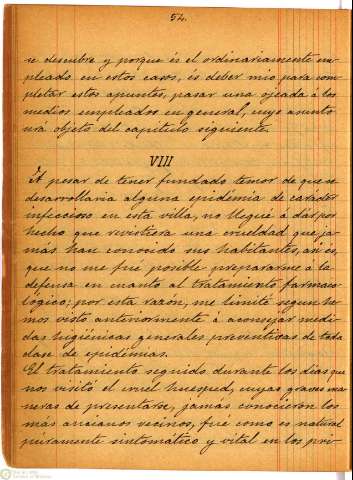 52.
se descubre y porque és el ordinariamente em-
pleado en estos casos, és deber mio para com-
pletar estos apuntes, pasar una ojeada á los
medios empleados en general, cuyo asunto
será objeto del capitulo siguiente.
VIII
A pesar de tener fundado temor de que se
desarrollaria alguna epidémia de carácter
infeccioso en esta villa, no llegué á dar por
hecho que revistiera una crueldad que ja-
más han conocido sus habitantes, así és,
que no me fué posible prepararme á la
defensa en cuanto al tratamiento farmaco-
lógico; por esta razón, me limité segun he-
mos visto anteriormente á aconsejar medi-
das higiénicas generales preventivas de toda
clase de epidémias.
El tratamiento seguido durante los dias que
nos visitó el cruel huesped, cuyas graves ma-
neras de presentarse, jamás conocieron los
más ancianos vecinos, fué como es natural
puramente sintomático y vital en los pri-